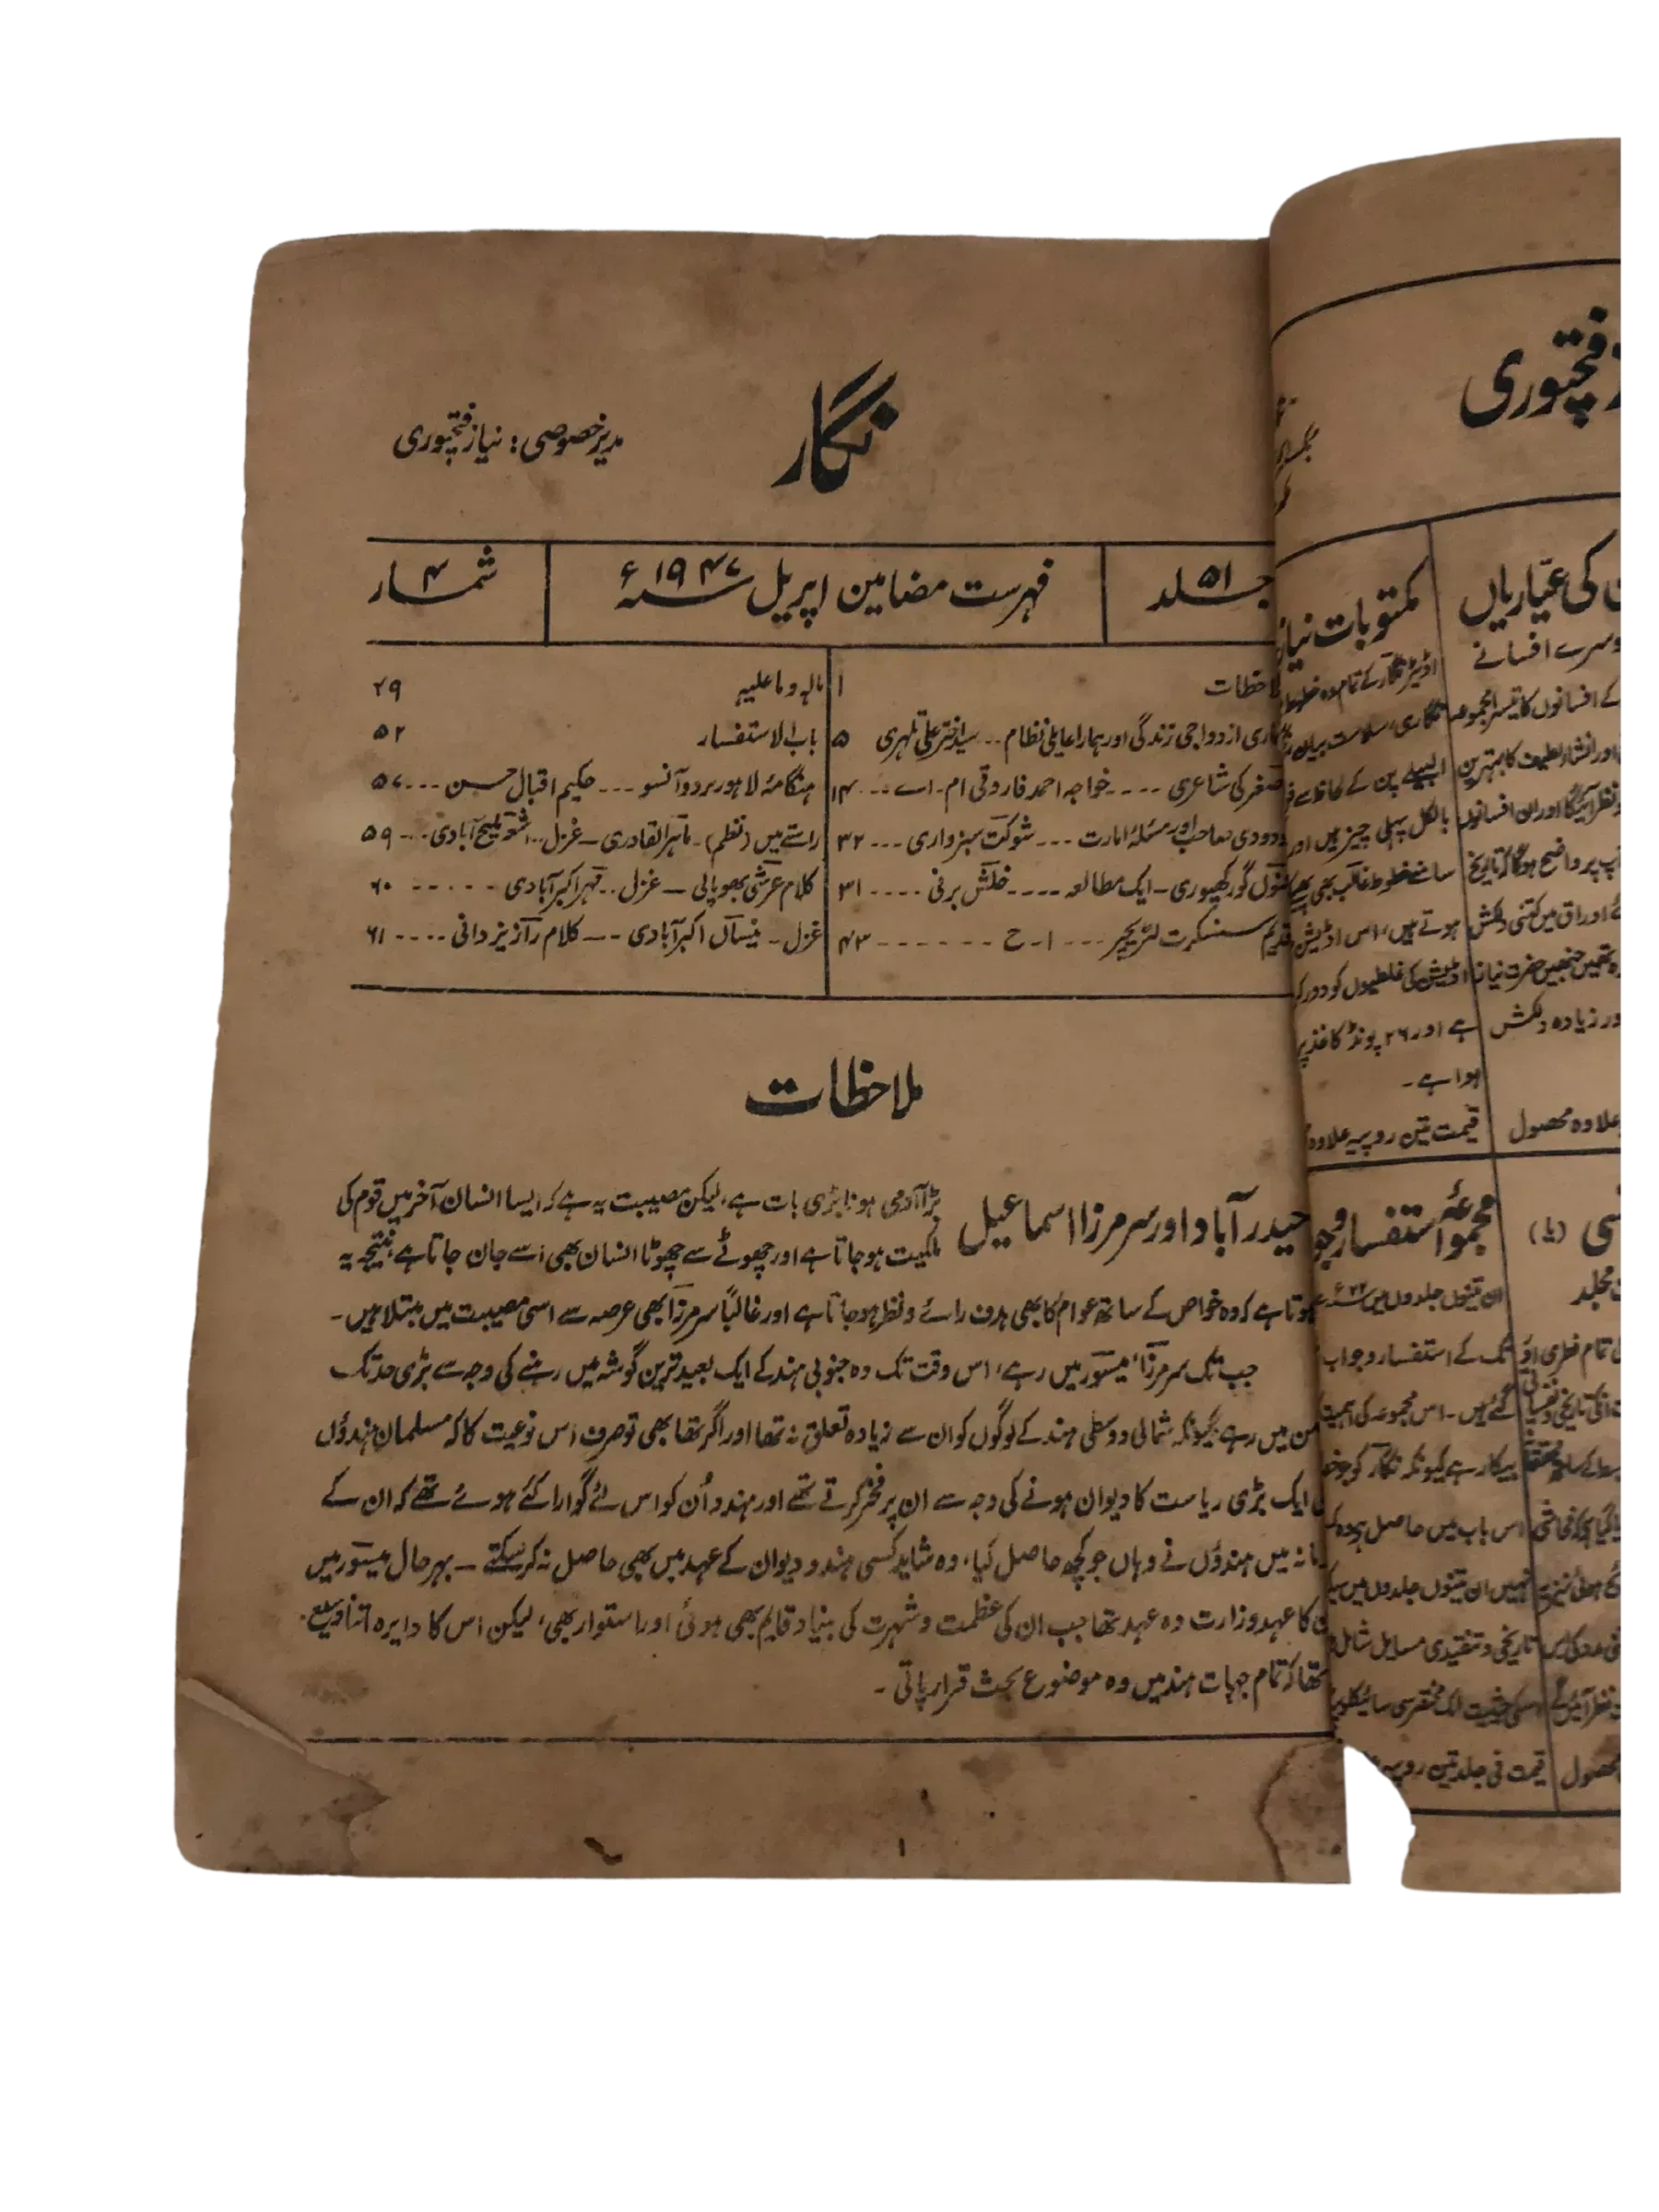 نگار
مدیر خصوصی: نیاز فتحپوری
جلد ۵۱
فہرست مضامین اپریل سنہ ۱۹۴۷ء
شمار ۴
ملاحظات ۱
ہماری ازدواجی زندگی اور ہمارا عایلی نظام۔۔ سید اختر علی تلہری ۵
اصغر کی شاعری ۔۔۔۔ خواجہ احمد فاروقی ام۔اے ۔۔ ۱۴
مودودی صاحب اور مسئلۂ امارت ۔۔۔ شوکت سبزواری ۔۔۔ ۳۲
مجنوں گورکھپوری ۔ ایک مطالعہ ۔۔۔۔ خلش برنی ۔۔۔۔ ۳۱
قدیم سنسکرت لٹریچر ۔۔۔ ا۔ح ۔۔۔۔۔۔ ۴۳
مالہ وما علیہ ۴۹
باب الاستفسار ۵۲
ہنگامۂ لاہور پر دو آنسو ۔۔۔ حکیم اقبال حسن ۔۔۔ ۵۷
راستے میں (نظم)۔ ماہر القادری ۔ غزل۔۔ ملیح آبادی ۔۔۔ ۵۹
کلام عرشی بھوپالی ۔ غزل ۔۔ قہر اکبرآبادی ۔۔۔۔۔ ۶۰
غزل ۔ نیساں اکبرآبادی ۔۔ کلام راز یزدانی ۔۔۔۔ ۶۱
ملاحظات
حیدرآباد اور سر مرزا اسماعیل
بڑا آدمی ہونا بڑی بات ہے، لیکن مصیبت یہ ہے کہ ایسا انسان آخر میں قوم کی
ملکیت ہو جاتا ہے اور چھوٹے سے چھوٹا انسان بھی اسے جان جاتا ہے، نتیجہ یہ
ہوتا ہے کہ وہ خواص کے ساتھ عوام کا بھی ہدف رائے و نظر ہو جاتا ہے اور غالباً سر مرزا بھی عرصہ سے اسی مصیبت میں مبتلا ہیں۔
جب تک سر مرزا، میسور میں رہے، اس وقت تک وہ جنوبی ہند کے ایک بعید ترین گوشہ میں رہنے کی وجہ سے بڑی حد تک
من میں رہے کیونکہ شمالی و وسطی ہند کے لوگوں کو ان سے زیادہ تعلق نہ تھا اور اگر تھا بھی تو صرف اس نوعیت کا کہ مسلمان ہندوؤں
ایک بڑی ریاست کا دیوان ہونے کی وجہ سے ان پر فخر کرتے تھے اور ہندو اُن کو اس لئے گوارا کئے ہوئے تھے کہ ان کے
نہ میں ہندوؤں نے وہاں جو کچھ حاصل کیا، وہ شاید کسی ہندو دیوان کے عہد میں بھی حاصل نہ کر سکتے ۔ بہرحال میسور میں
کا عہد وزارت وہ عہد تھا جب ان کی عظمت و شہرت کی بنیاد قایم بھی ہوئی اور استوار بھی، لیکن اس کا دایرہ اتنا وسیع
تھا کہ تمام جہات ہند میں وہ موضوع بحث قرار پاتی ۔
۱
فتحپوری
کی عیّاریاں
دوسرے افسانے
کے افسانوں کا تیسرا مجموعہ
اور انشاء لطیف کا بہترین
نظر آئیگا اور ان افسانوں
پر واضح ہوگا کہ تاریخ
اوراق میں کتنی دلکش
تھیں جنھیں حضرت نیاز
اور زیادہ دلکش
علاوہ محصول
مکتوبات نیاز
اڈیٹر نگار کے تمام وہ خطوط
نگاری، سلاست بیان
البیلے پن کے لحاظ سے
بالکل پہلی چیز ہیں اور
سامنے خطوط غالب بھی
ہوتے ہیں، اس اڈیشن
اڈیشن کی غلطیوں کو دور
ہے اور ۲۶ پونڈ کاغذ پر
ہوا ہے۔
قیمت تین روپیہ علاوہ
مجلد
تمام فطری
محصول
مجموعۂ استفسار و جو
ان تینوں جلدوں میں
تک کے استفسار و جواب
گئے ہیں۔ اس مجموعہ کی اہمیت
بیکار ہے کیونکہ نگار کو جو
اس باب میں حاصل ہے وہ
نہیں ان تینوں جلدوں میں
تاریخی و تنقیدی مسایل شامل
اسکی حیثیت ایک مختصر سی سائیکلو
قیمت فی جلد تین روپیہ